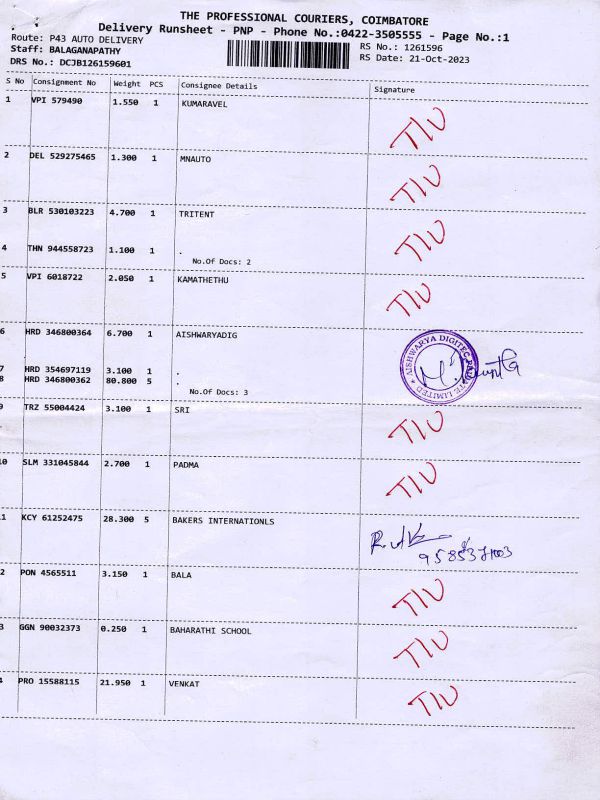 THE PROFESSIONAL COURIERS, COIMBATORE
Delivery Runsheet - PNP - Phone No.:0422-3505555 - Page No.:1
Route: P43 AUTO DELIVERY
RS No.: 1261596
Staff: BALAGANAPATHY
RS Date: 21-Oct-2023
DRS No.: DCJB126159601
S No Consignment No Weight PCS Consignee Details Signature
1 VPI 579490 1.550 1 KUMARAVEL
T/U
2 DEL 529275465 1.300 1 MNAUTO
T/U
3 BLR 530103223 4.700 1 TRITENT
T/U
4 THN 944558723 1.100 1 .
No.Of Docs: 2
5 VPI 6018722 2.050 1 KAMATHETHU
T/U
6 HRD 346800364 6.700 1 AISHWARYADIG
AISHWARYA DIGITEC PRIVATE LIMITED
7 HRD 354697119 3.100 1 .
8 HRD 346800362 80.800 5 .
No.Of Docs: 3
9 TRZ 55004424 3.100 1 SRI
T/U
10 SLM 331045844 2.700 1 PADMA
T/U
1 KCY 61252475 28.300 5 BAKERS INTERNATIONLS
2 PON 4565511 3.150 1 BALA
T/U
3 GGN 90032373 0.250 1 BAHARATHI SCHOOL
T/U
4 PRO 15588115 21.950 1 VENKAT
T/U